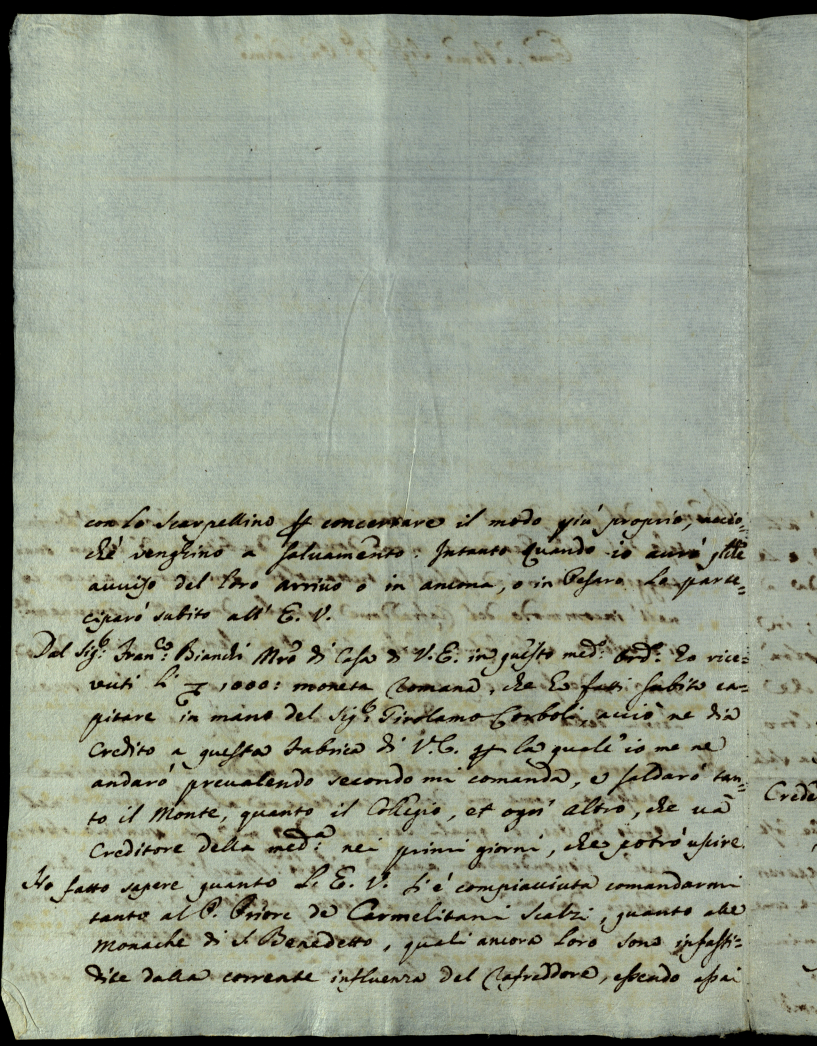 con lo Scarpellino p concertare il modo più proprio, accio=
ché venghino a salvamento: Intanto quando io auró
auuiso del loro arriuo o in ancona, o in Pesaro lo parte=
ciparó subito all' E. V.
Dal Sig.r Fran.co Bianchi Mro di Casa di V. E. in questo med.o Ord.o ho rice=
vuti li 1000: moneta Romana, che ho fatti subito ca=
pitare in mano del Sig.r Girolamo Corboli, acciò ne dia
Credito a questa Fabrica di V. E. p la quale io me ne
andaró prevalendo secondo mi comanda, e saldaró tan=
to il Monte, quanto il Collegio, et ogni altro, che va
Creditore della med.a nei primi giorni, che potró uscire
Ho fatto sapere quanto L. E. V. s'é compiacciuta comandarmi
tanto al P. Priore de Carmelitani Scalzi, quanto alle
Monache di S. Benedetto, quali ancora loro sono infasti=
dite dalla corrente influenza del Rafreddore, essendo assai
Crede